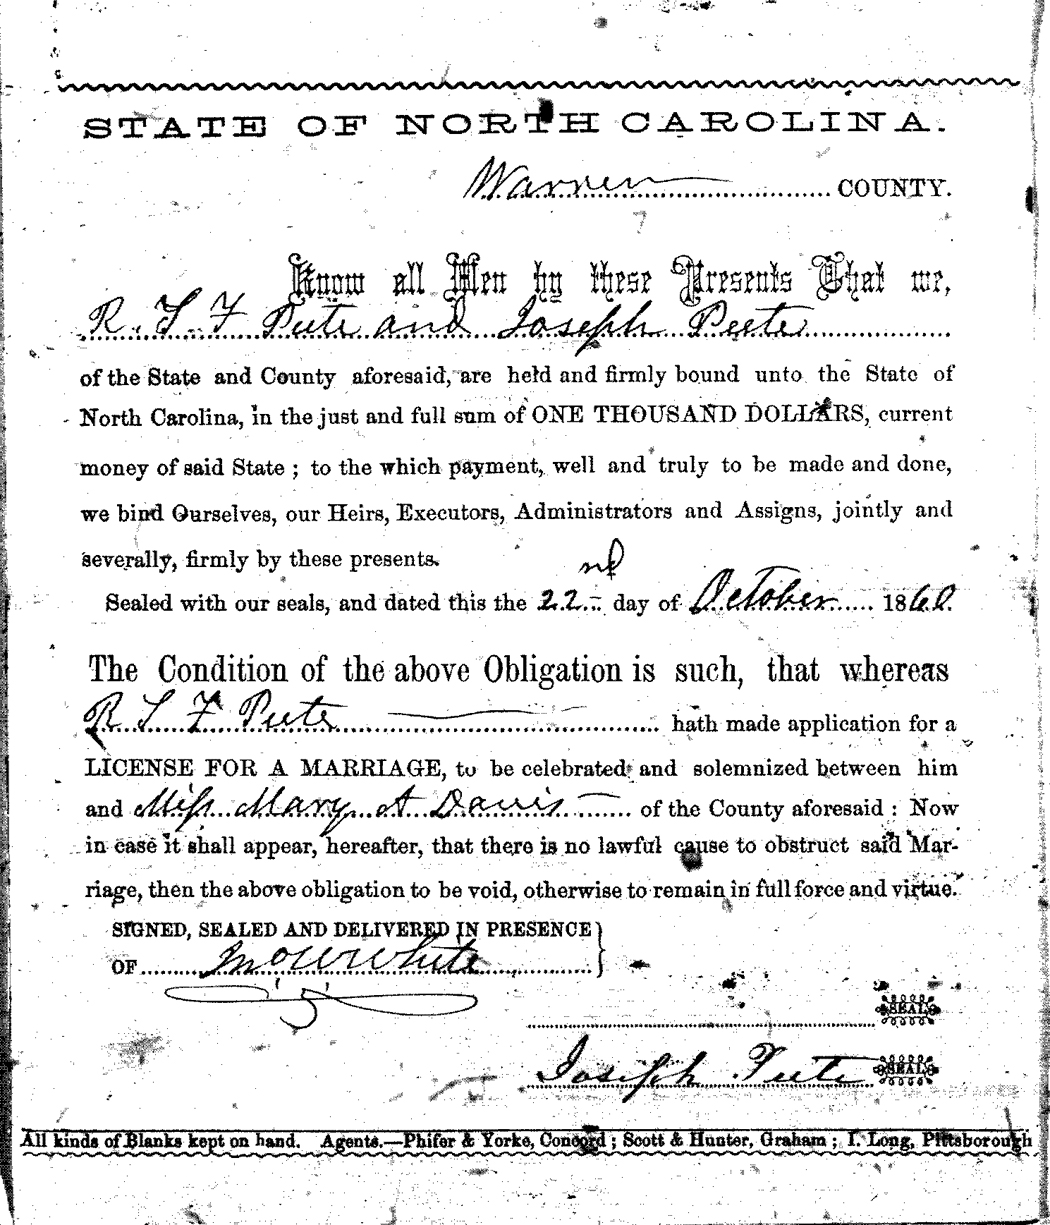 STATE OF NORTH CAROLINA.
Warren COUNTY.
Know all Men by these Presents That we,
R. S. F Peete and Joseph Peete
of the State and County aforesaid, are held and firmly bound unto the State of
North Carolina, in the just and full sum of ONE THOUSAND DOLLARS, current
money of said State ; to the which payment, well and truly to be made and done,
we bind Ourselves, our Heirs, Executors, Administrators and Assigns, jointly and
severally, firmly by these presents.
Sealed with our seals, and dated this the 22nd day of October 1860.
The Condition of the above Obligation is such, that whereas
R S F Peete hath made application for a
LICENSE FOR A MARRIAGE, to be celebrated and solemnized between him
and Miss Mary A Davis of the County aforesaid : Now
in case it shall appear, hereafter, that there is no lawful cause to obstruct said Mar-
riage, then the above obligation to be void, otherwise to remain in full force and virtue.
SIGNED, SEALED AND DELIVERED IN PRESENCE
OF White
SEAL
Joseph Peete SEAL
All kinds of Blanks kept on hand. Agents.—Phifer & Yorke, Concord ; Scott & Hunter, Graham ; I. Long, Pittsborough